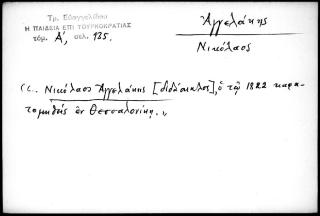 Τρ. Εὐαγγελίδου
Η ΠΑΙΔΕΙΑ ΕΠΙ ΤΟΥΡΚΟΚΡΑΤΙΑΣ
τόμ. Α', σελ. 135.
Ἀγγελάκης
Νικόλαος
«.. Νικόλαος Ἀγγελάκης [διδάσκαλος], ὁ τῷ 1822 καρα-
τομηθεὶς ἐν Θεσσαλονίκῃ..»